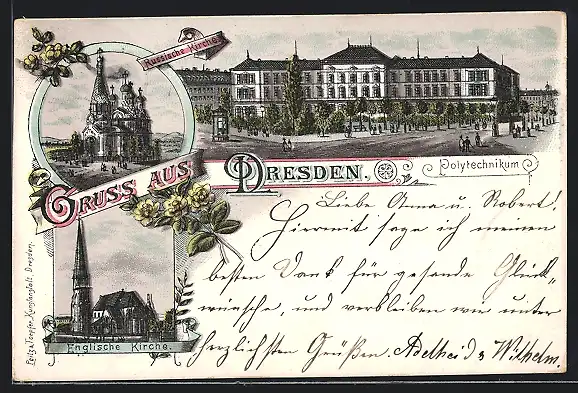 Russische Kirche.
Gruss aus
Dresden.
Polytechnikum
Englische Kirche.
Peitz & Toepfer, Kunstanstalt, Dresden.
Liebe Anna u. Robert!
Hiermit sage ich meinen
besten Dank für gesande Glück-
wünsche, und verbleiben wir unter
herzlichsten Grüßen. Adelheid & Wilhelm.